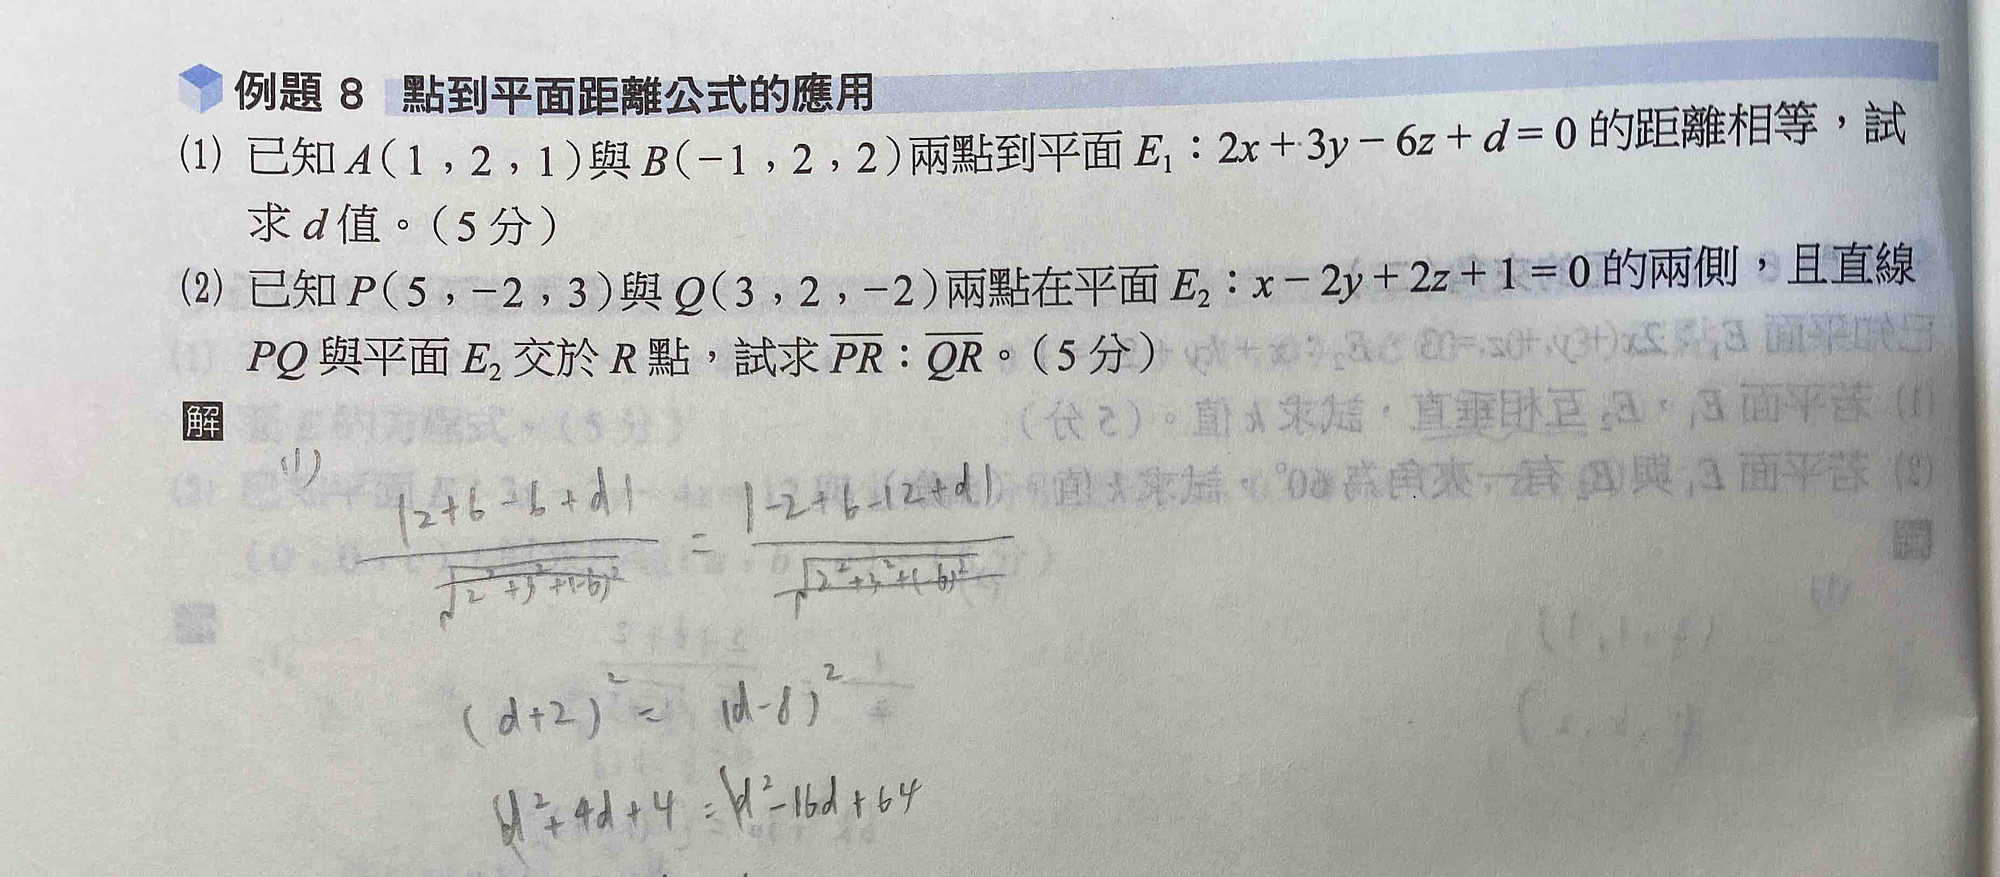 例題 8 點到平面距離公式的應用
(1) 已知 A(1，2，1)與 B(−1，2，2)兩點到平面 E₁：2x+3y−6z+d=0 的距離相等，試
求 d 值。(5 分)
(2) 已知 P(5，−2，3)與 Q(3，2，−2)兩點在平面 E₂：x−2y+2z+1=0 的兩側，且直線
PQ 與平面 E₂ 交於 R 點，試求 P̅R̅：Q̅R̅。(5 分)
解
(1)
|2+6-6+d| / √(2²+3²+(-6)²) = |-2+6-12+d| / √(2²+3²+(-6)²)
(d+2)² = (d-8)²
d²+4d+4 = d²-16d+64